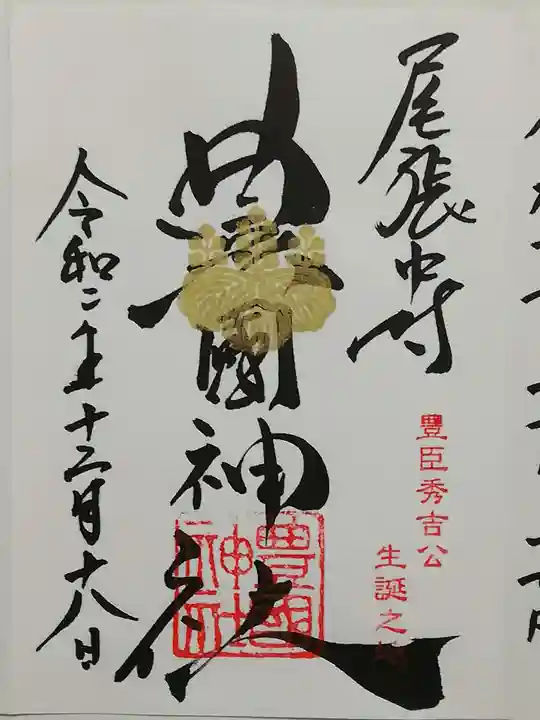 尾張中村
豊臣秀吉公
生誕之地
豊國神社
豊國神社
令和二年十二月十八日